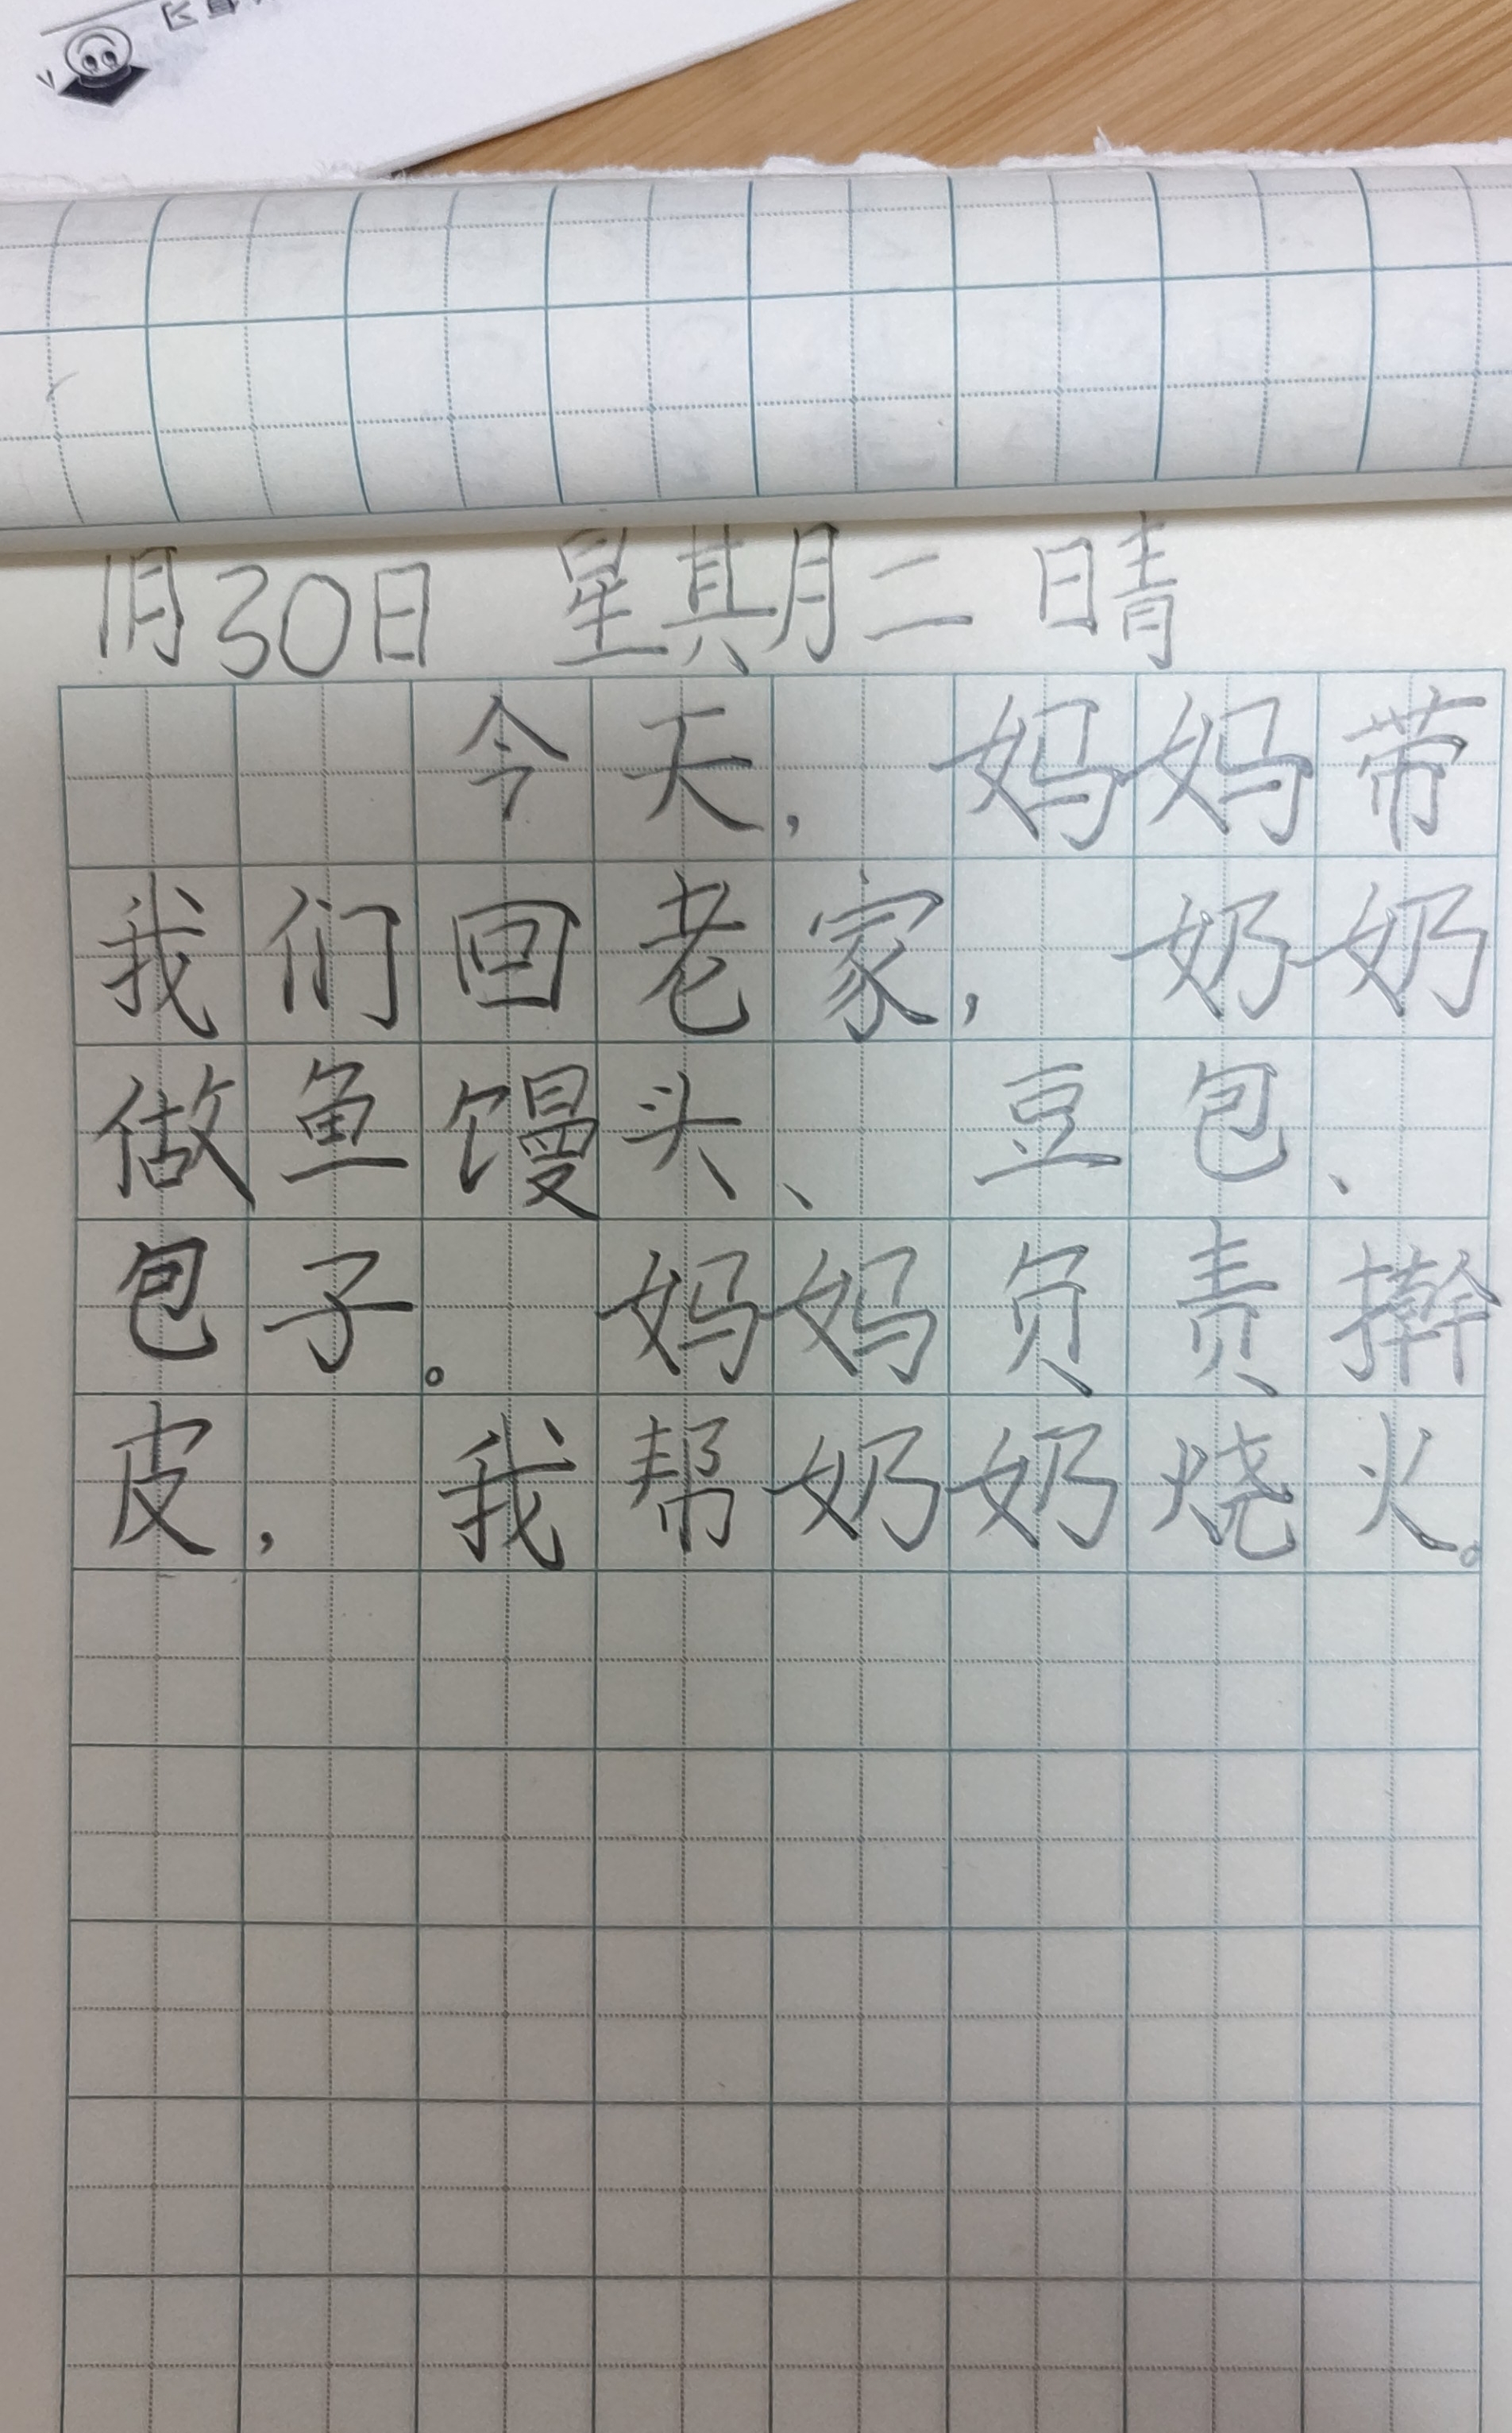 1月30日 星期二 晴
今天，妈妈带
我们回老家，奶奶
做鱼馒头、豆包、
包子。妈妈负责擀
皮，我帮奶奶烧火。